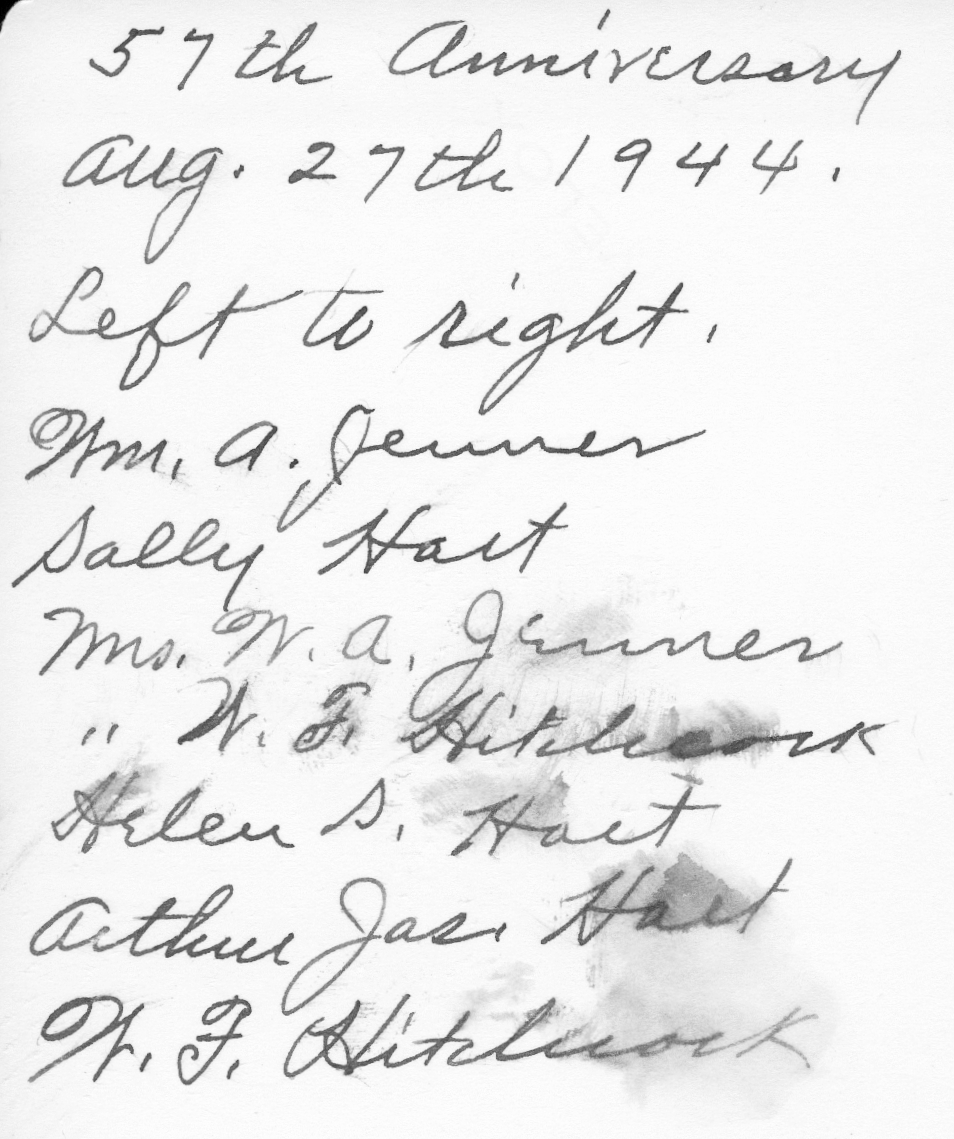 57th Anniversary
Aug. 27th 1944.
Left to right.
Wm. A. Jenner
Sally Hart
Mrs. W. A. Jenner
" W. F. Hitchcock
Helen S. Hart
Arthur Jas. Hart
W. F. Hitchcock